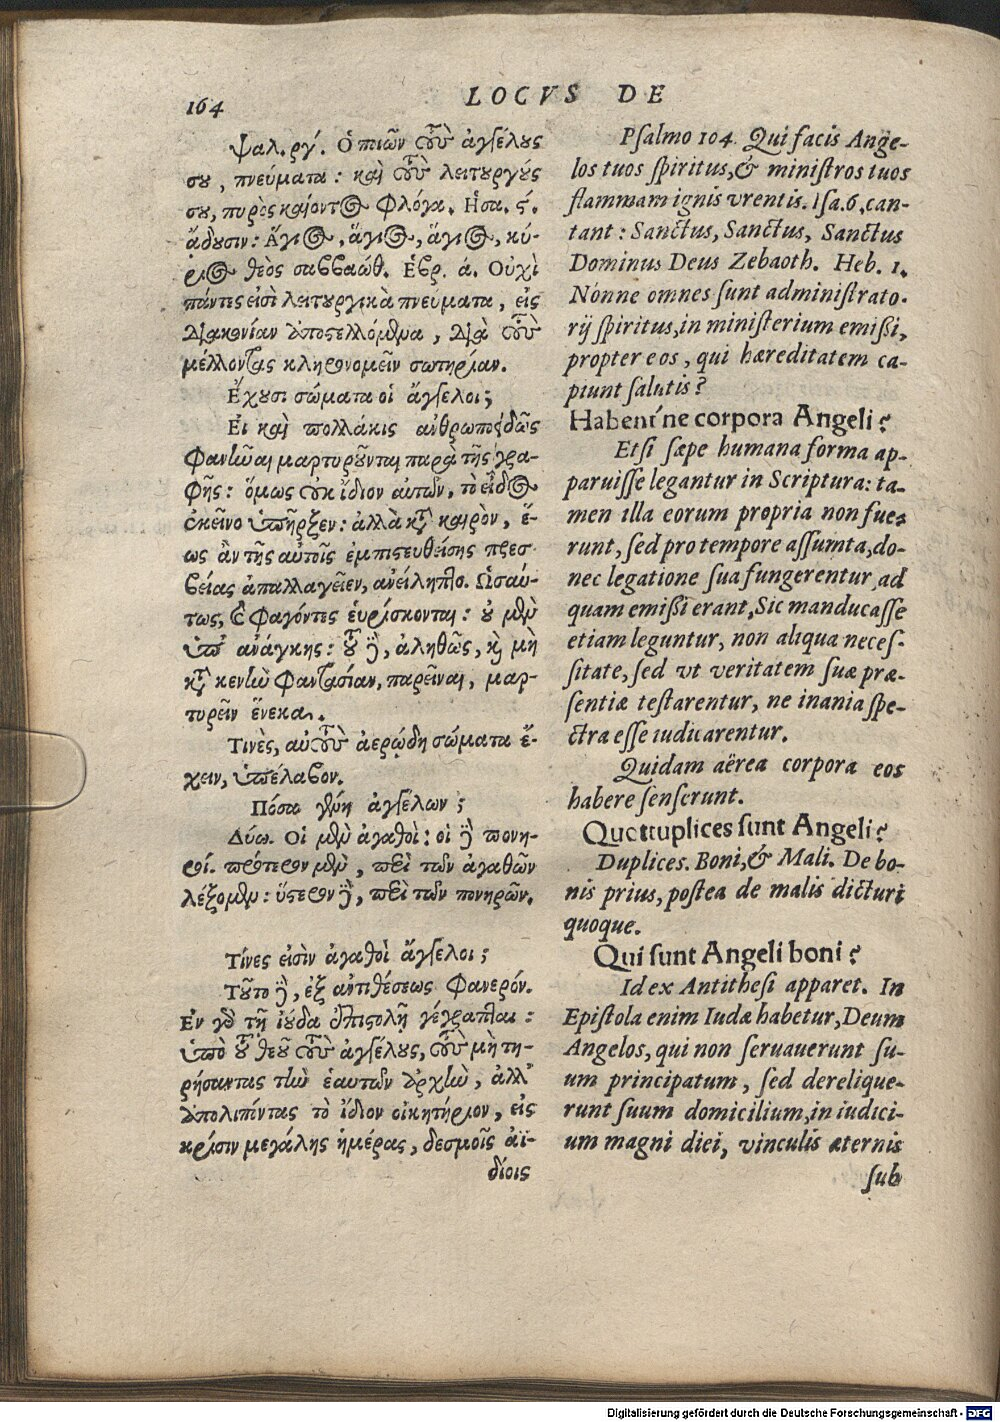 164
LOCVS DE
ψαλ. ργ. Ὁ ποιῶν τοὺς ἀγγέλους
σου, πνεύματα: καὶ τοὺς λειτουργούς
σου, πυρὸς καίοντος φλόγα. Ησα. ς.
ᾄδουσιν: Ἅγιος, ἅγιος, ἅγιος, κύ-
ριος θεὸς σαββαώθ. Ἑβρ. ά. Οὐχὶ
πάντες εἰσὶ λειτουργικὰ πνεύματα, εἰς
διακονίαν ἀποστελλόμενα, διὰ τοὺς
μέλλοντας κληρονομεῖν σωτηρίαν.
Ἔχουσι σώματα οἱ ἄγγελοι;
Εἰ καὶ πολλάκις ἀνθρωποειδῶς
φανῶναι μαρτυροῦνται παρὰ τῆς γρα-
φῆς: ὅμως οὐκ ἴδιον αὐτῶν, τὸ εἶδος
ἐκεῖνο ὑπῆρξεν: ἀλλὰ κατὰ καιρὸν, ἕ-
ως ἂν τῆς αὐτοῖς ἐμπιστευθείσης πρεσ-
βείας ἀπαλλαγεῖεν, ἀνείληπτο. Ὡσαύ-
τως, καὶ φαγόντες εὑρίσκονται: οὐ μὲν
ὑπ' ἀνάγκης: τοῦ δὲ, ἀληθῶς, καὶ μὴ
κατὰ κενὴν φαντασίαν, παρεῖναι, μαρ-
τυρεῖν ἕνεκα.
Τινὲς, αὐτοὺς ἀερώδη σώματα ἔ-
χειν, ὑπέλαβον.
Πόσα γένη ἀγγέλων;
Δύω. Οἱ μὲν ἀγαθοὶ: οἱ δὲ πονη-
ροί. πρότερον μὲν, περὶ τῶν ἀγαθῶν
λέξομεν: ὕστερον δὲ, περὶ τῶν πονηρῶν.
Τίνες εἰσὶν ἀγαθοὶ ἄγγελοι;
Τοῦτο δὲ, ἐξ ἀντιθέσεως φανερόν.
Εν γὰρ τῇ ἰούδα ἐπιστολῇ γέγραπται:
ὑπὸ τοῦ θεοῦ τοὺς ἀγγέλους, τοὺς μὴ τη-
ρήσαντας τὴν ἑαυτῶν ἀρχὴν, ἀλλ'
ἀπολιπόντας τὸ ἴδιον οἰκητήριον, εἰς
κρίσιν μεγάλης ἡμέρας, δεσμοῖς ἀϊ-
δίοις
Psalmo 104. Qui facis Ange-
los tuos spiritus, & ministros tuos
flammam ignis vrentis. Isa. 6. can-
tant: Sanctus, Sanctus, Sanctus
Dominus Deus Zebaoth. Heb. 1.
Nónne omnes sunt administrato-
rij spiritus, in ministerium emißi,
propter eos, qui hæreditatem ca-
piunt salutis?
Habent'ne corpora Angeli?
Etsi sæpe humana forma ap-
paruisse legantur in Scriptura: ta-
men illa eorum propria non fue-
runt, sed pro tempore assumta, do-
nec legatione sua fungerentur, ad
quam emißi erant, Sic manducasse
etiam leguntur, non aliqua neces-
sitate, sed vt veritatem suæ præ-
sentiæ testarentur, ne inania spe-
ctra esse iudicarentur.
Quidam aërea corpora eos
habere senserunt.
Quotuplices sunt Angeli?
Duplices. Boni, & Mali. De bo-
nis prius, postea de malis dicturi
quoque.
Qui sunt Angeli boni?
Id ex Antithesi apparet. In
Epistola enim Iudæ habetur, Deum
Angelos, qui non seruauerunt su-
um principatum, sed dereliquе-
runt suum domicilium, in iudici-
um magni diei, vinculis æternis
sub
Digitalisierung gefördert durch die Deutsche Forschungsgemeinschaft - DFG